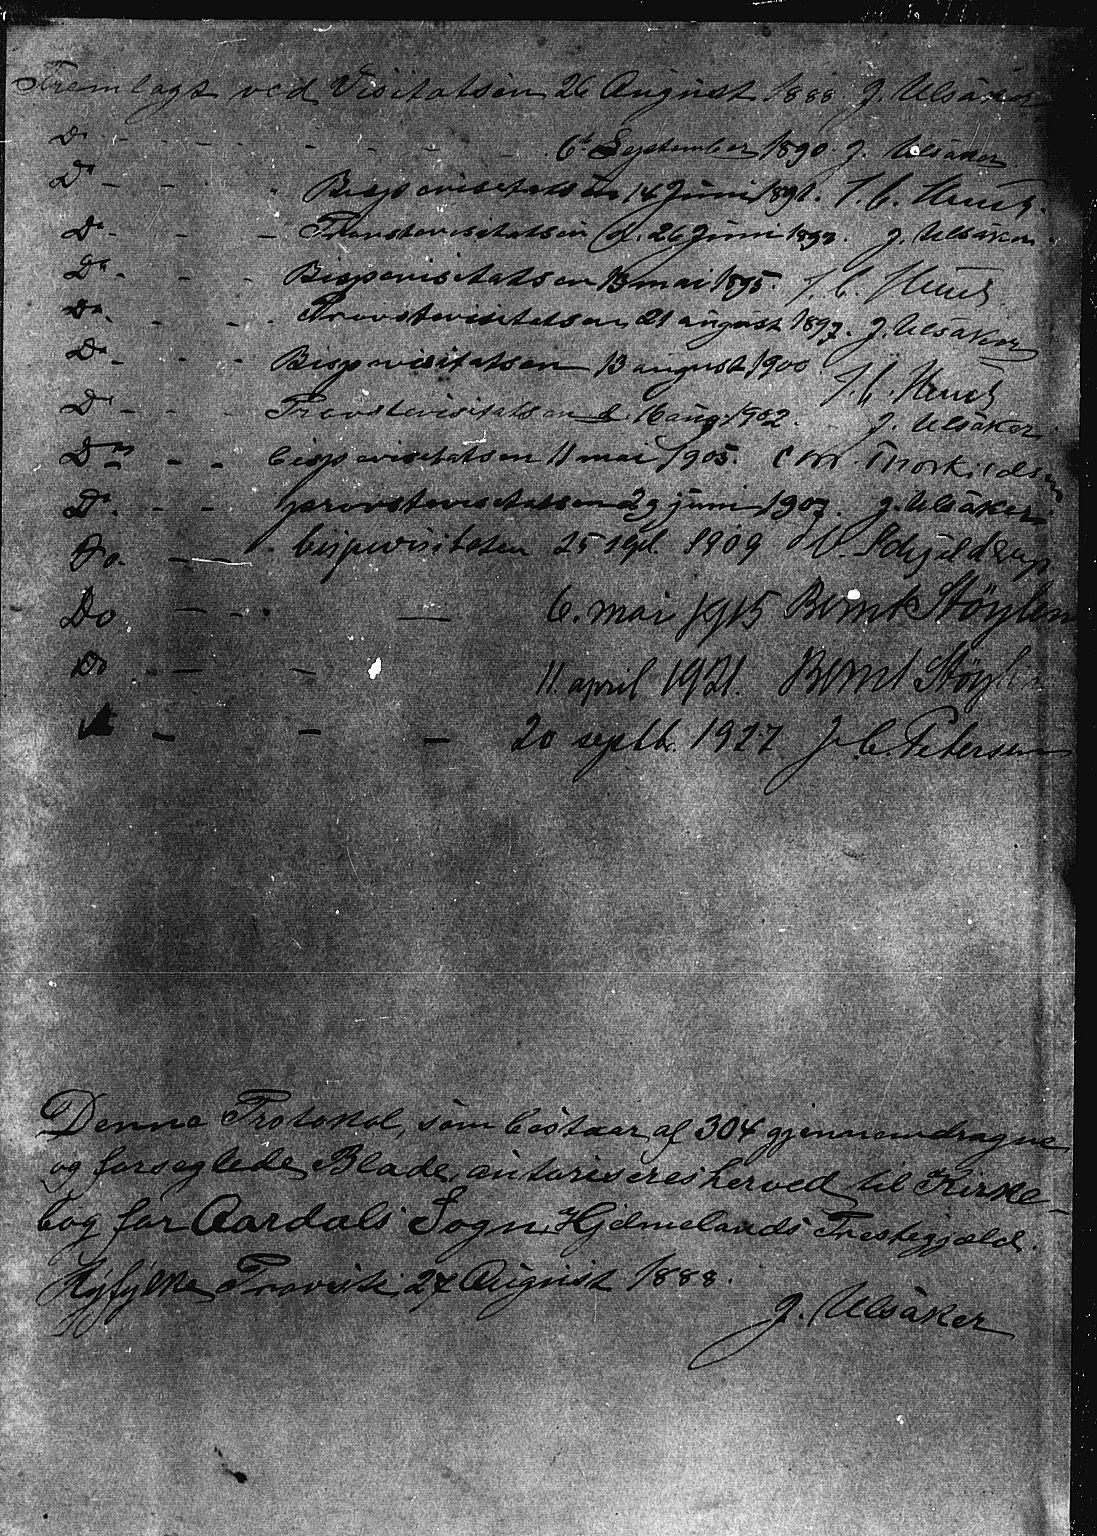 Fremlagt ved Visitatsen 26 August 1888 J. Ulsåker
Do - - - - - - - - 6te September 1890. J. Ulsåker.
Do - - - - Bispevisitatsen 14 Juni 1891. J. C. Heuch.
Do. - - - Provstevisitatsen d. 26 Juni 1893. J. Ulsåker.
Do. - - - Bispevisitatsen 13 mai 1895. J. C. Heuch.
Do. - - - Provstevisitatsen 21 august 1897. J. Ulsåker
Do. - - - Bispevisitatsen 13 august 1900 J. C. Heuch
Do - - - Provstevisitatsen d. 16 aug. 1902. J. Ulsåker
Do - - - bispevisitatsen 11 mai 1905. Chr. Thorkildsen
Do. - - - provstevisitatsen 29 juni 1907. J. Ulsåker
Do. - - bispevisitatsen 25 sept. 1909 Schjelderup
Do - - - 6. mai 1915 Bernt Støylen
Do - - - 11. april 1921. Bernt Støylen
- - - 20 septb. 1927 J. C. Petersen
Denne Protokol, som bestaar af 304 gjennemdragne
og forseglede Blade, autoriseres herved til Kirke-
bog for Aardals Sogn, Hjelmelands Prestegjæld.
Ryfylke Provsti 27 August 1888.
J. Ulsåker